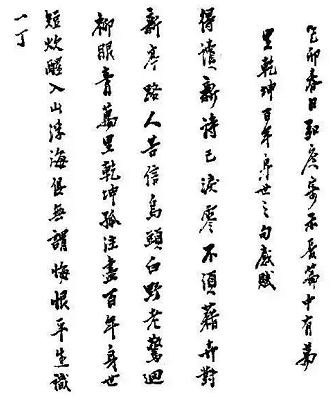 乙卯春日寄示長篇中有萬
里乾坤百年身世之句感賦
得讀新詩已淚零不須藉卉對
新亭路人告信烏頭白野老驚迴
柳眼青萬里乾坤孤注盡百年身世
短炊醒入山浮海俱無謂悔恨平生識
一丁